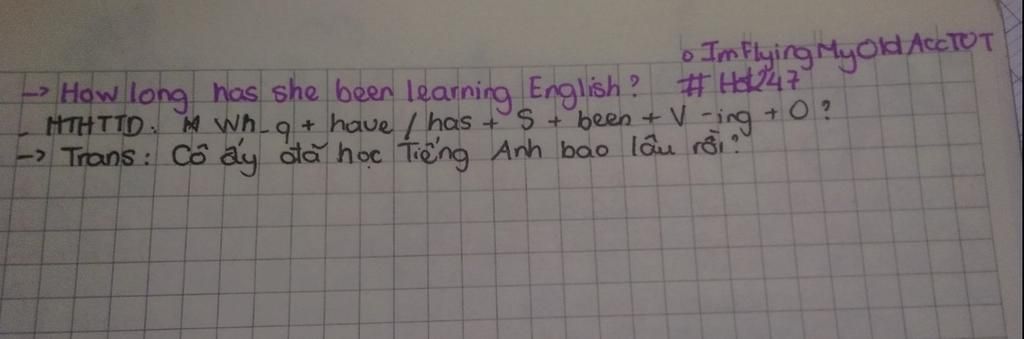 o ImFlyingMyOldAccTOT
→ How long has she been learning English? # Hd247
- HTHTTD: Wh_q + have / has + S + been + V -ing + O?
→ Trans: Cô ấy đã học Tiếng Anh bao lâu rồi?